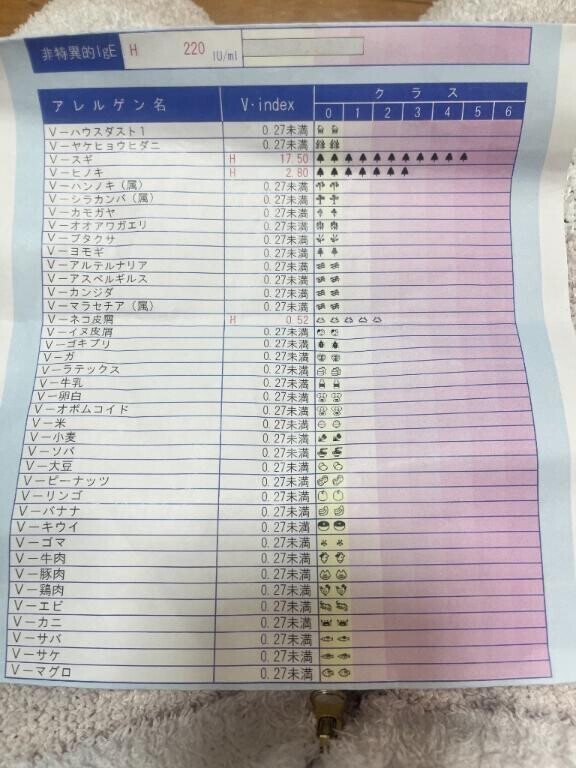 非特異的IgE H 220 IU/ml
アレルゲン名 V・index クラス
0 1 2 3 4 5 6
V－ハウスダスト1 0.27未満
V－ヤケヒョウヒダニ 0.27未満
V－スギ H 17.50
V－ヒノキ H 2.80
V－ハンノキ(属) 0.27未満
V－シラカンバ(属) 0.27未満
V－カモガヤ 0.27未満
V－オオアワガエリ 0.27未満
V－ブタクサ 0.27未満
V－ヨモギ 0.27未満
V－アルテルナリア 0.27未満
V－アスペルギルス 0.27未満
V－カンジダ 0.27未満
V－マラセチア(属) 0.27未満
V－ネコ皮屑 H 0.52
V－イヌ皮屑 0.27未満
V－ゴキブリ 0.27未満
V－ガ 0.27未満
V－ラテックス 0.27未満
V－牛乳 0.27未満
V－卵白 0.27未満
V－オボムコイド 0.27未満
V－米 0.27未満
V－小麦 0.27未満
V－ソバ 0.27未満
V－大豆 0.27未満
V－ピーナッツ 0.27未満
V－リンゴ 0.27未満
V－バナナ 0.27未満
V－キウイ 0.27未満
V－ゴマ 0.27未満
V－牛肉 0.27未満
V－豚肉 0.27未満
V－鶏肉 0.27未満
V－エビ 0.27未満
V－カニ 0.27未満
V－サバ 0.27未満
V－サケ 0.27未満
V－マグロ 0.27未満